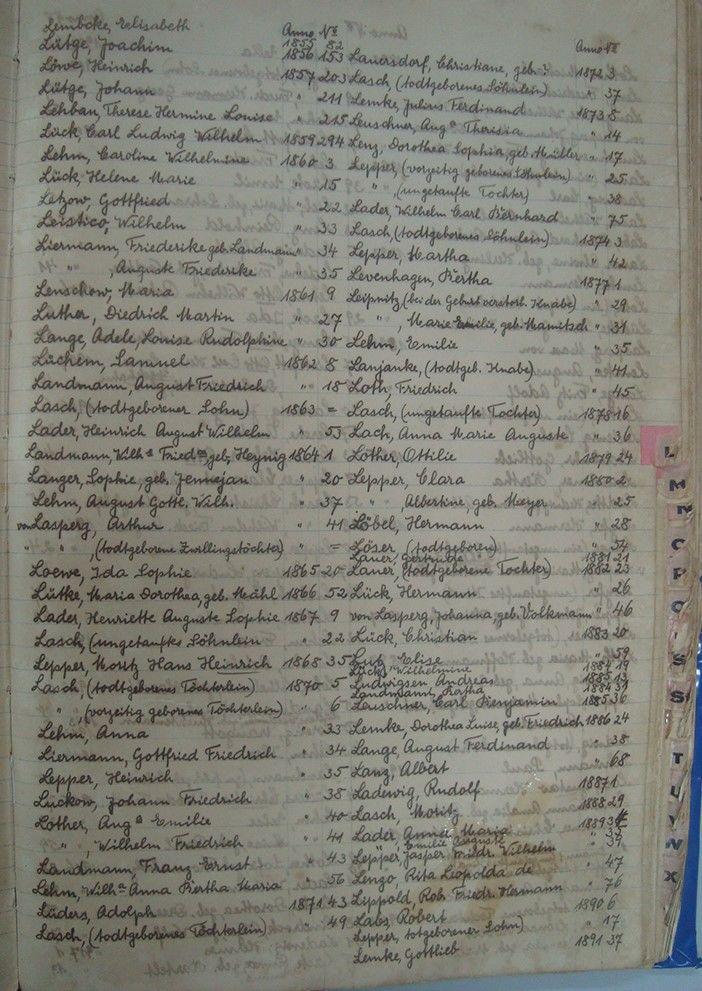 Anno No
Lembcke, Elisabeth 1855 82
Lütge, Joachim 1856 153
Löwe, Heinrich 1857 203
Lütge, Johann " 211
Lehban, Therese Hermine Louise " 215
Lück, Carl Ludwig Wilhelm 1859 294
Lehm, Caroline Wilhelmine 1860 3
Lück, Helene Marie " 15
Letzow, Gottfried " 22
Leistico, Wilhelm " 33
Liermann, Friederike geb. Landmann " 34
" , Auguste Friederike " 35
Lenschow, Maria 1861 9
Luther, Diedrich Martin " 27
Lange, Adele, Louise Rudolphine " 30
Lüchem, Samuel 1862 8
Landmann, August Friedrich " 18
Lasch, (todtgeborener Sohn) 1863 =
Lader, Heinrich August Wilhelm " 53
Landmann, Wilhe Friedke, geb. Heynig 1864 1
Langer, Sophie, geb. Jennejan " 20
Lehm, August Gottl. Wilh. " 37
von Lasperg, Arthur " 41
" " , (todtgeborene Zwillingstöchter) " =
Loewe, Ida Sophie 1865 20
Lütke, Maria Dorothea, geb. Mähl 1866 52
Lader, Henriette Auguste Sophie 1867 9
Lasch, (ungetauftes Söhnlein " 22
Lepper, Moritz Hans Heinrich 1868 35
Lasch, (todtgeborenes Töchterlein) 1870 5
" , (vorzeitig geborenes Töchterlein) " 6
Lehm, Anna " 33
Liermann, Gottfried Friedrich " 34
Lepper, Heinrich " 35
Lückow, Johann Friedrich " 38
Lother, Auga Emilie " 40
" , Wilhelm Friedrich " 41
Landmann, Franz Ernst " 43
Lehm, Wilhe Anna Bertha Maria " 56
Lüders, Adolph 1871 43
Lasch, (todtgeborenes Töchterlein) " 49
Anno No
Lauersdorf, Christiane, geb. ? 1872 3
Lasch, (todtgeborenes Söhnlein) " 37
Lemke, Julius Ferdinand 1873 8
Leuschner, Auga Theresia " 14
Lenz, Dorothea Sophia, geb. Müller " 17
Lepper, (vorzeitig geborenes Söhnlein) " 25
" , (ungetaufte Tochter) " 38
Lader, Wilhelm Carl Bernhard " 75
Lasch, (todtgeborenes Söhnlein) 1874 3
Lepper, Martha " 42
Levenhagen, Bertha 1877 1
Leipnitz, (bei der Geburt verstorb. Knabe) " 29
" , Marie Emilie, geb. Mamitsch " 31
Lehm, Emilie " 35
Lanjanke, (todtgeb. Knabe) " 41
Loth, Friedrich " 45
Lasch, (ungetaufte Tochter) 1878 16
Lach, Anna Marie Auguste " 36
Lother, Ottilie 1879 24
Lepper, Clara 1880 2
" , Albertine, geb. Meyer " 25
Löbel, Hermann " 28
Löser, (todtgeboren) " 54
Lauer, Gertrude 1881 21
Lauer, (todtgeborene Tochter) 1882 23
Lück, Hermann " 26
von Lasperg, Johanna, geb. Volkmann " 46
Lück, Christian 1883 20
Elise " 59
Lück, Wilhelmine 1884 19
Ludwigson, Andreas
Landmann,
Leuschner, Carl Benjamin 1885 36
Lemke, Dorothea Luise, geb. Friedrich 1886 24
Lange, August Ferdinand " 38
Lanz, Albert " 68
Ladewig, Rudolf 1887 1
Lasch, Moritz 1888 29
Lader, Maria 1889
Emilie Auguste
Lepper, Jasper Wilhelm
Lenzo, Rita Leopolda de " 47
Lippold, Rob. Friedr. Hermann " 76
Labs, Robert 1890 6
Lepper, totgeborener Sohn) " 17
Lemke, Gottlieb 1891 37
L
M
N
O
P
S
S
T
U
V
W
X